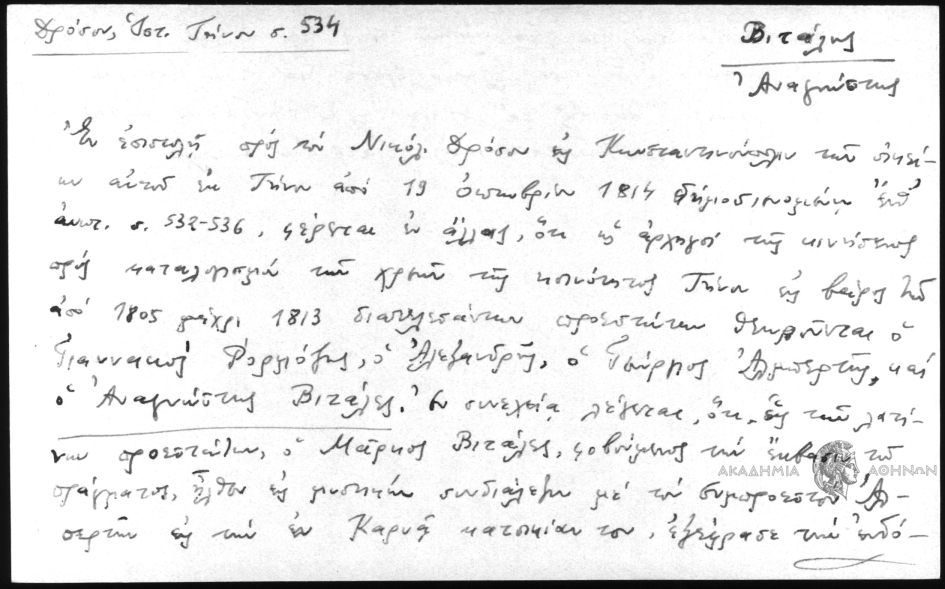 Δρόσου, Ἱστ. Τήνου σ. 534
Βιτάλης
Ἀναγνώστης
Ἐν ἐπιστολῇ πρός τόν Νικόλ. Δρόσον εἰς Κωνσταντινούπολιν τῶν οἰκεί-
ων αὐτοῦ ἐκ Τήνου ἀπό 19 Ὀκτωβρίου 1814 δημοσιευομένῃ ἔνθ'
ἀνωτ. σ. 532-536, φέρεται ἐν ἄλλοις, ὅτι ὡς ἀρχηγοί τῆς κινήσεως
πρός καταλογισμόν τῶν χρεῶν τῆς κοινότητος Τήνου εἰς βάρος τῶν
ἀπό 1805 μέχρι 1813 διατελεσάντων προεστώτων θεωροῦνται ὁ
Γιαννακός, ὁ Ἀλεξανδρῆς, ὁ Γεώργιος Ἀλμπερτῆς, καί
ὁ Ἀναγνώστης Βιτάλες. Ἐν συνεχείᾳ λέγεται, ὅτι εἷς τῶν λατί-
νων προεστώτων, ὁ Μάρκος Βιτάλες, φοβούμενος τήν ἔκβασιν τοῦ
πράγματος, ἦλθεν εἰς μυστικήν συνδιάλεξιν μέ τόν συμπροεστόν Ἀλ-
περτῆν εἰς τήν ἐν Καρυᾷ κατοικίαν του, ἐξέφρασε τήν ἐνδό-
ΑΚΑΔΗΜΙΑ ΑΘΗΝΩΝ